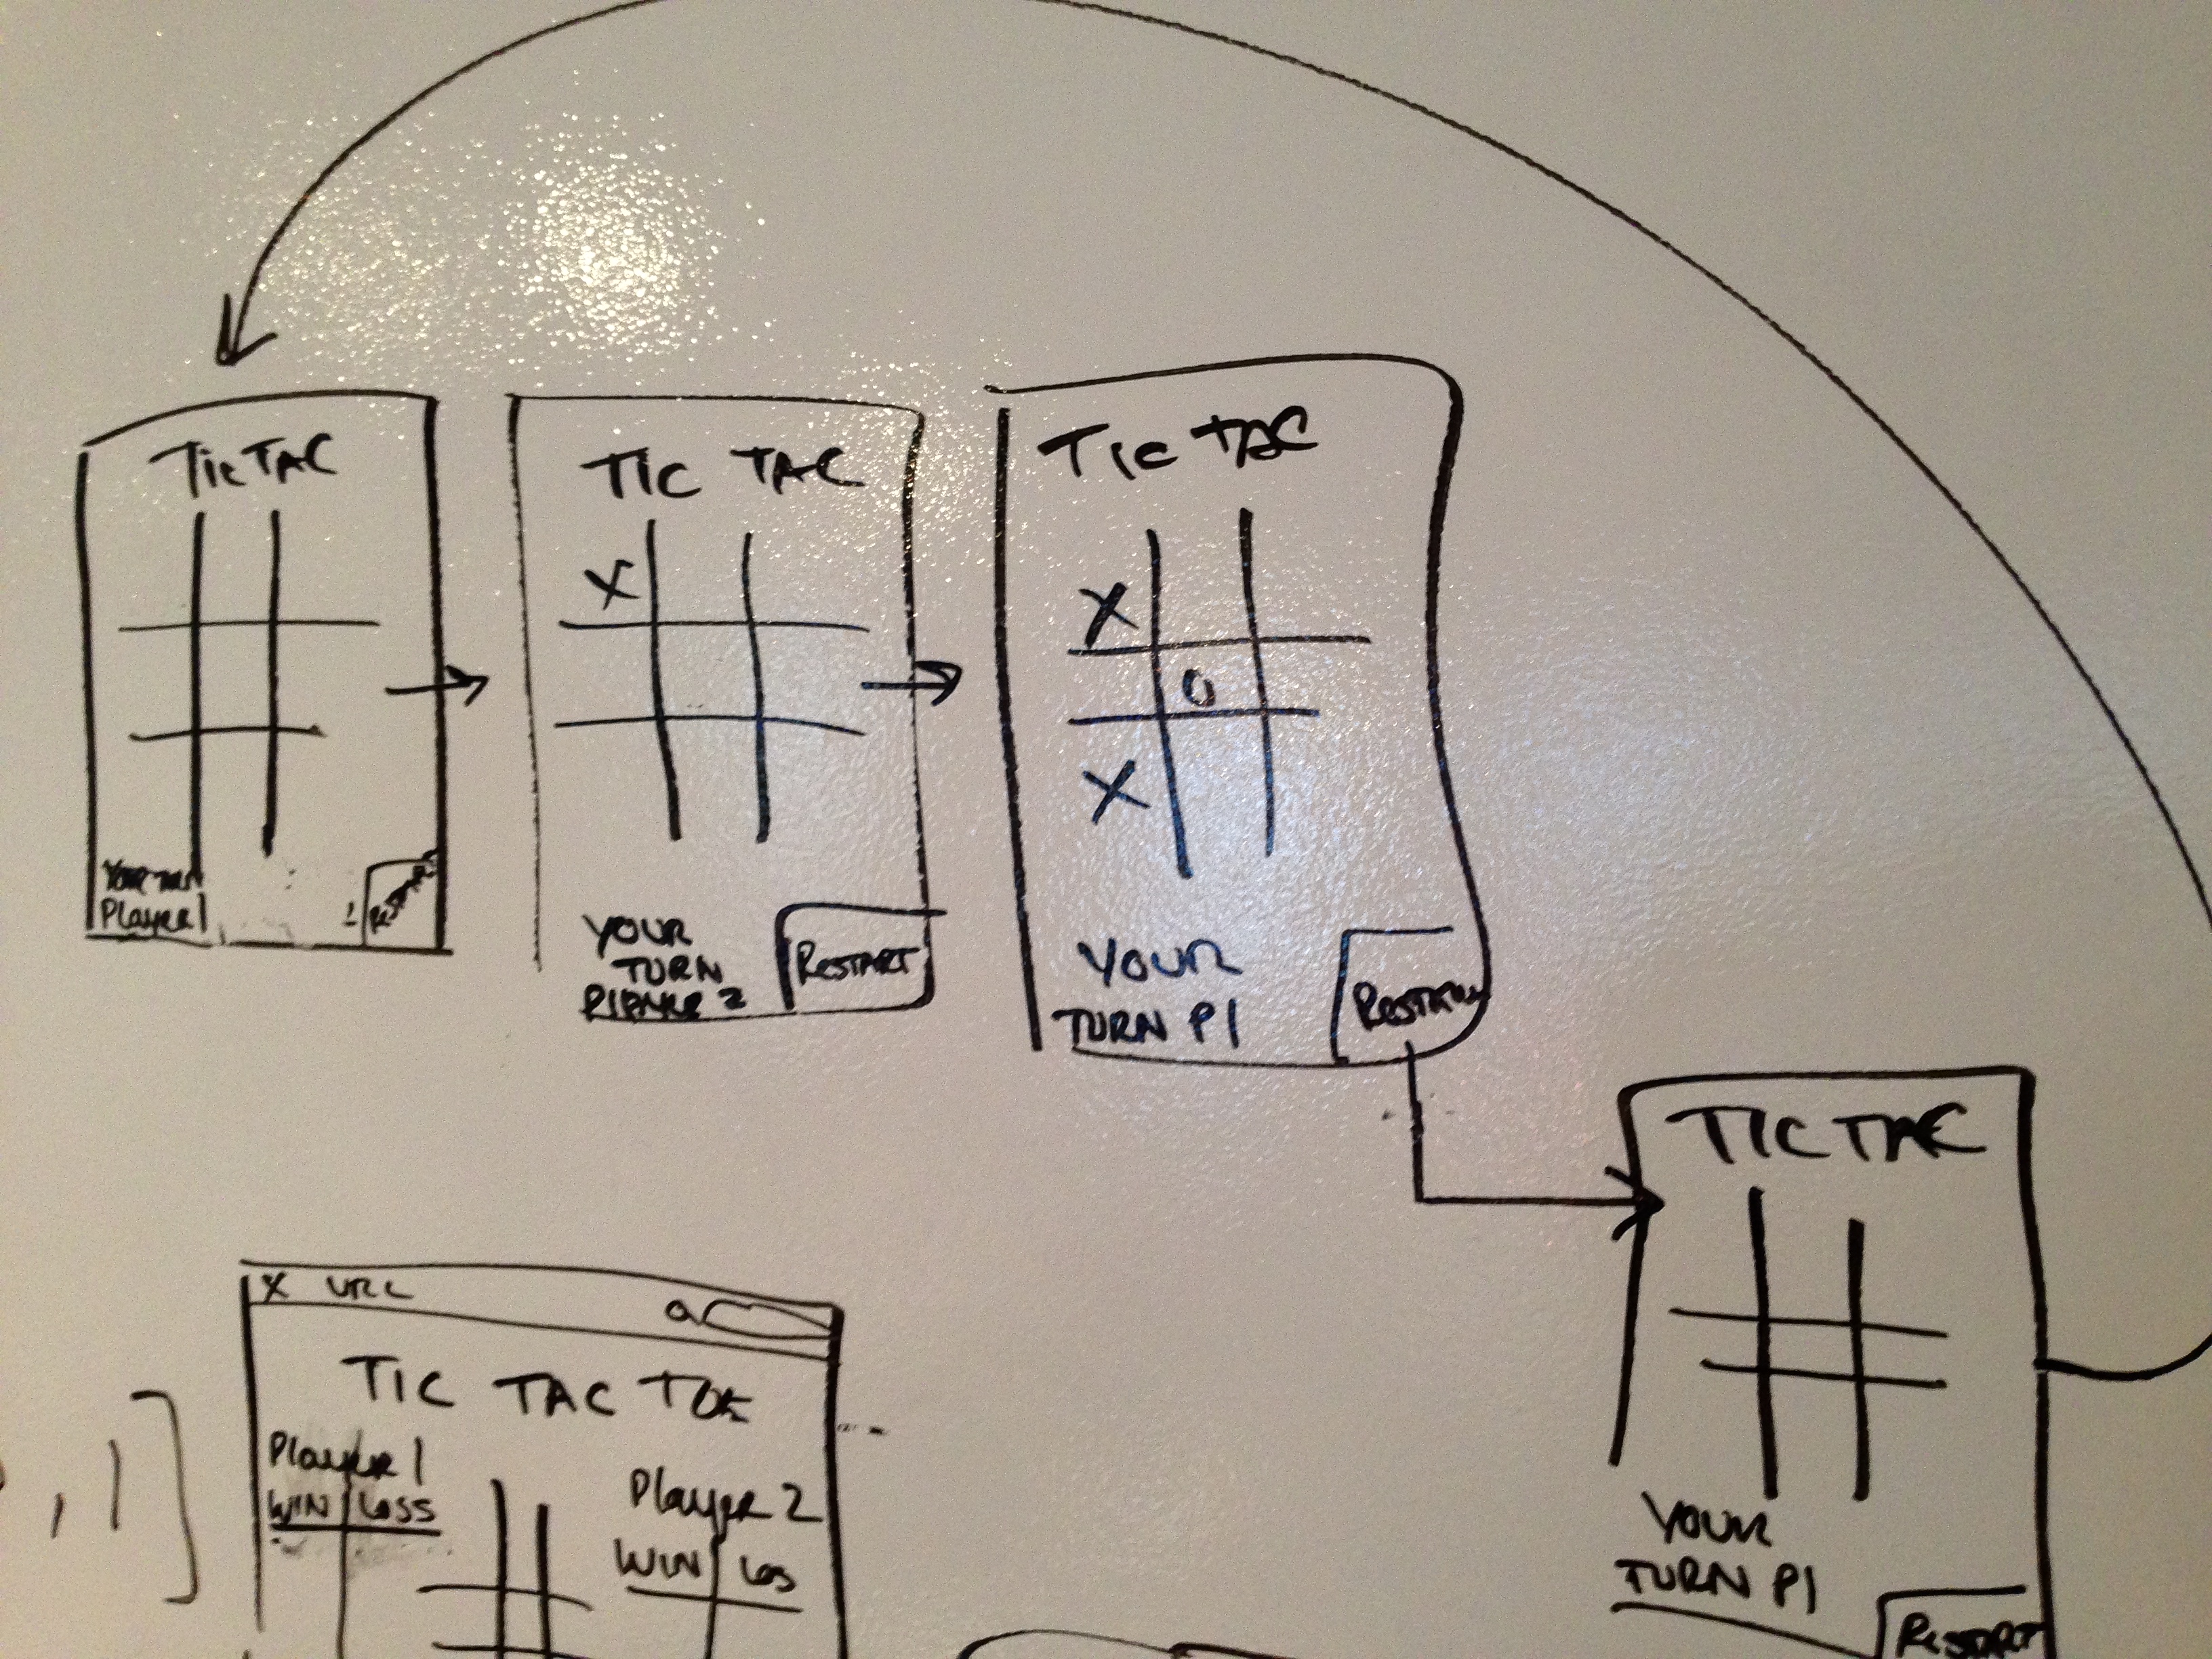 TIC TAC
YOUR TURN
Player 1
RESTART
TIC TAC
X
YOUR
TURN
PLAYER 2
RESTART
TIC TAC
X
O
X
YOUR
TURN P1
RESTART
TIC TAC
YOUR
TURN P1
RESTART
X URL
TIC TAC TOE
Player 1
WIN LOSS
Player 2
WIN Los
, 1 ]